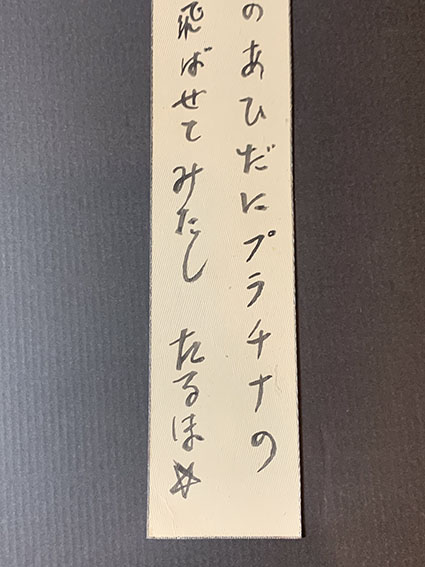 のあひだにプラチナの
飛ばせてみたし たるほ☆